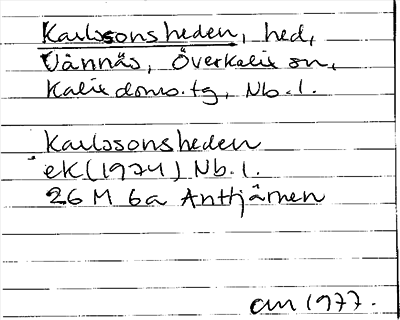 Karlssonsheden, hed,
Vännäs, Överkalix sn,
Kalix doms.tg, Nb.l.
Karlssonsheden
eK(1974) Nb.l.
26 M 6a Anttjärnen
am 1977.